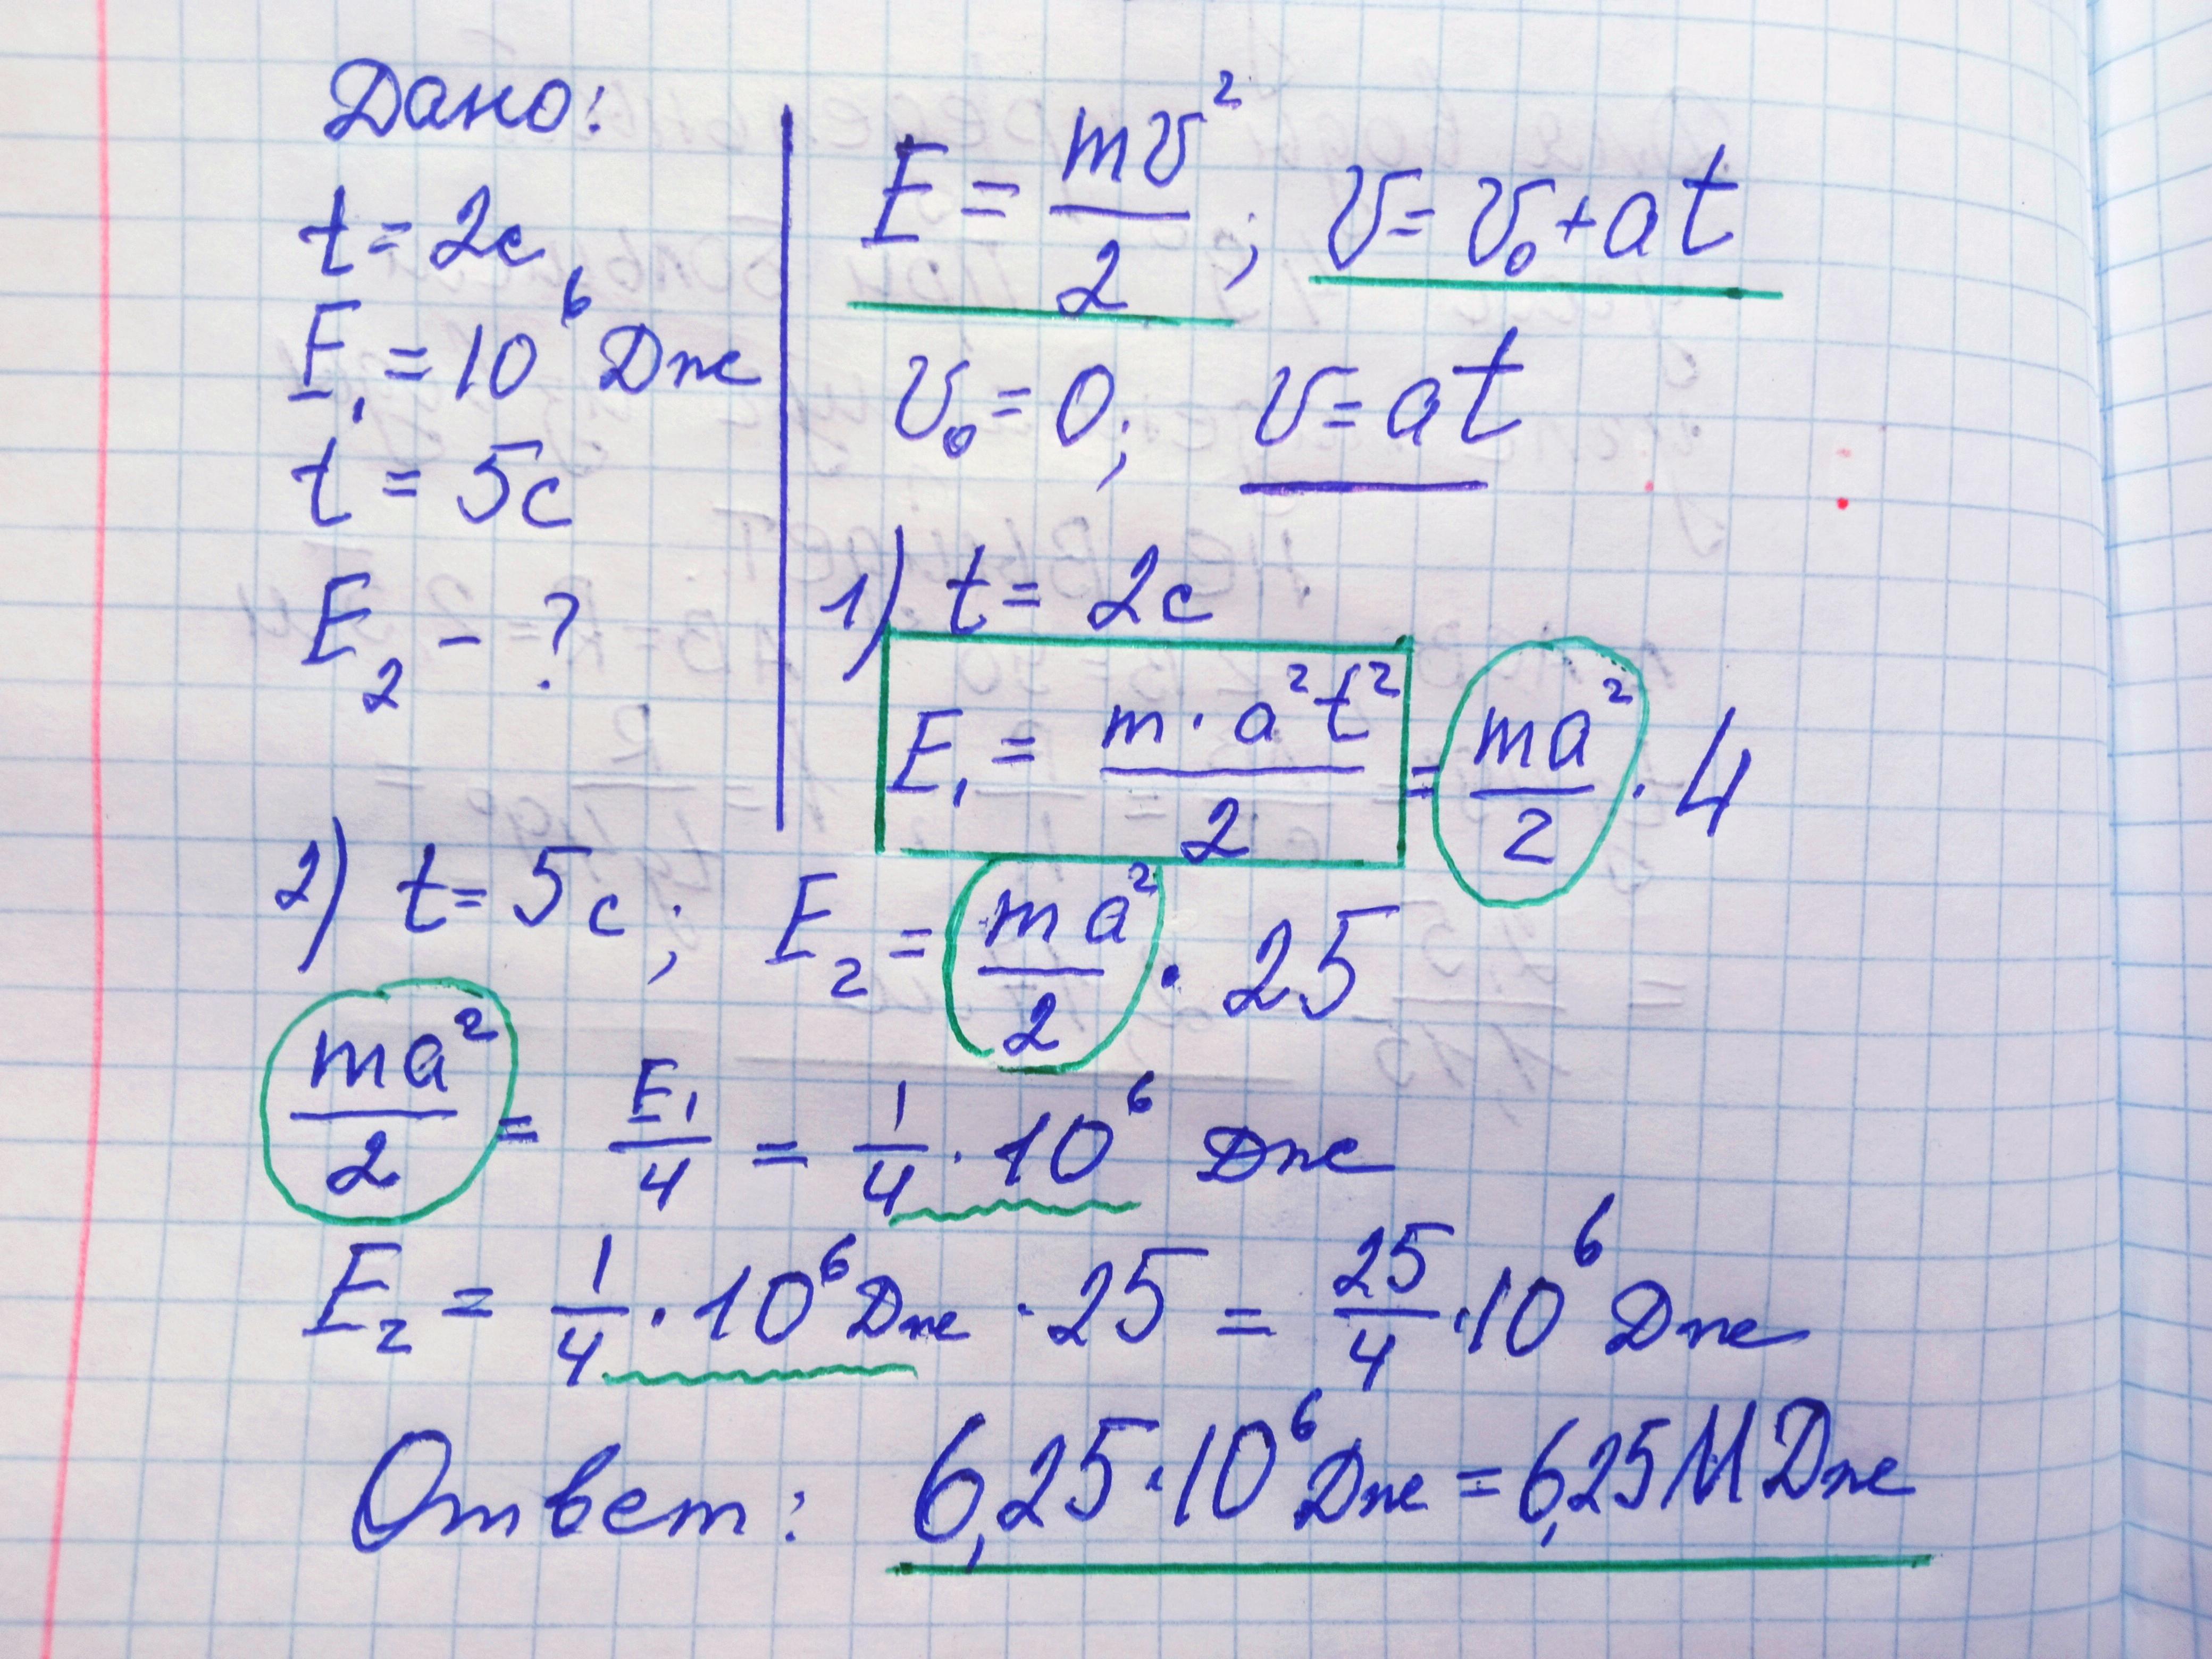 Дано:
t = 2с
E₁ = 10⁶ Дж
t = 5с
E₂ - ?
E = mv²/2; v = v₀ + at
v₀ = 0; v = at
1) t = 2с
E₁ = m · a²t²/2 = ma²/2 · 4
2) t = 5с; E₂ = ma²/2 · 25
ma²/2 = E₁/4 = 1/4 · 10⁶ Дж
E₂ = 1/4 · 10⁶ Дж · 25 = 25/4 · 10⁶ Дж
Ответ: 6,25 · 10⁶ Дж = 6,25 МДж